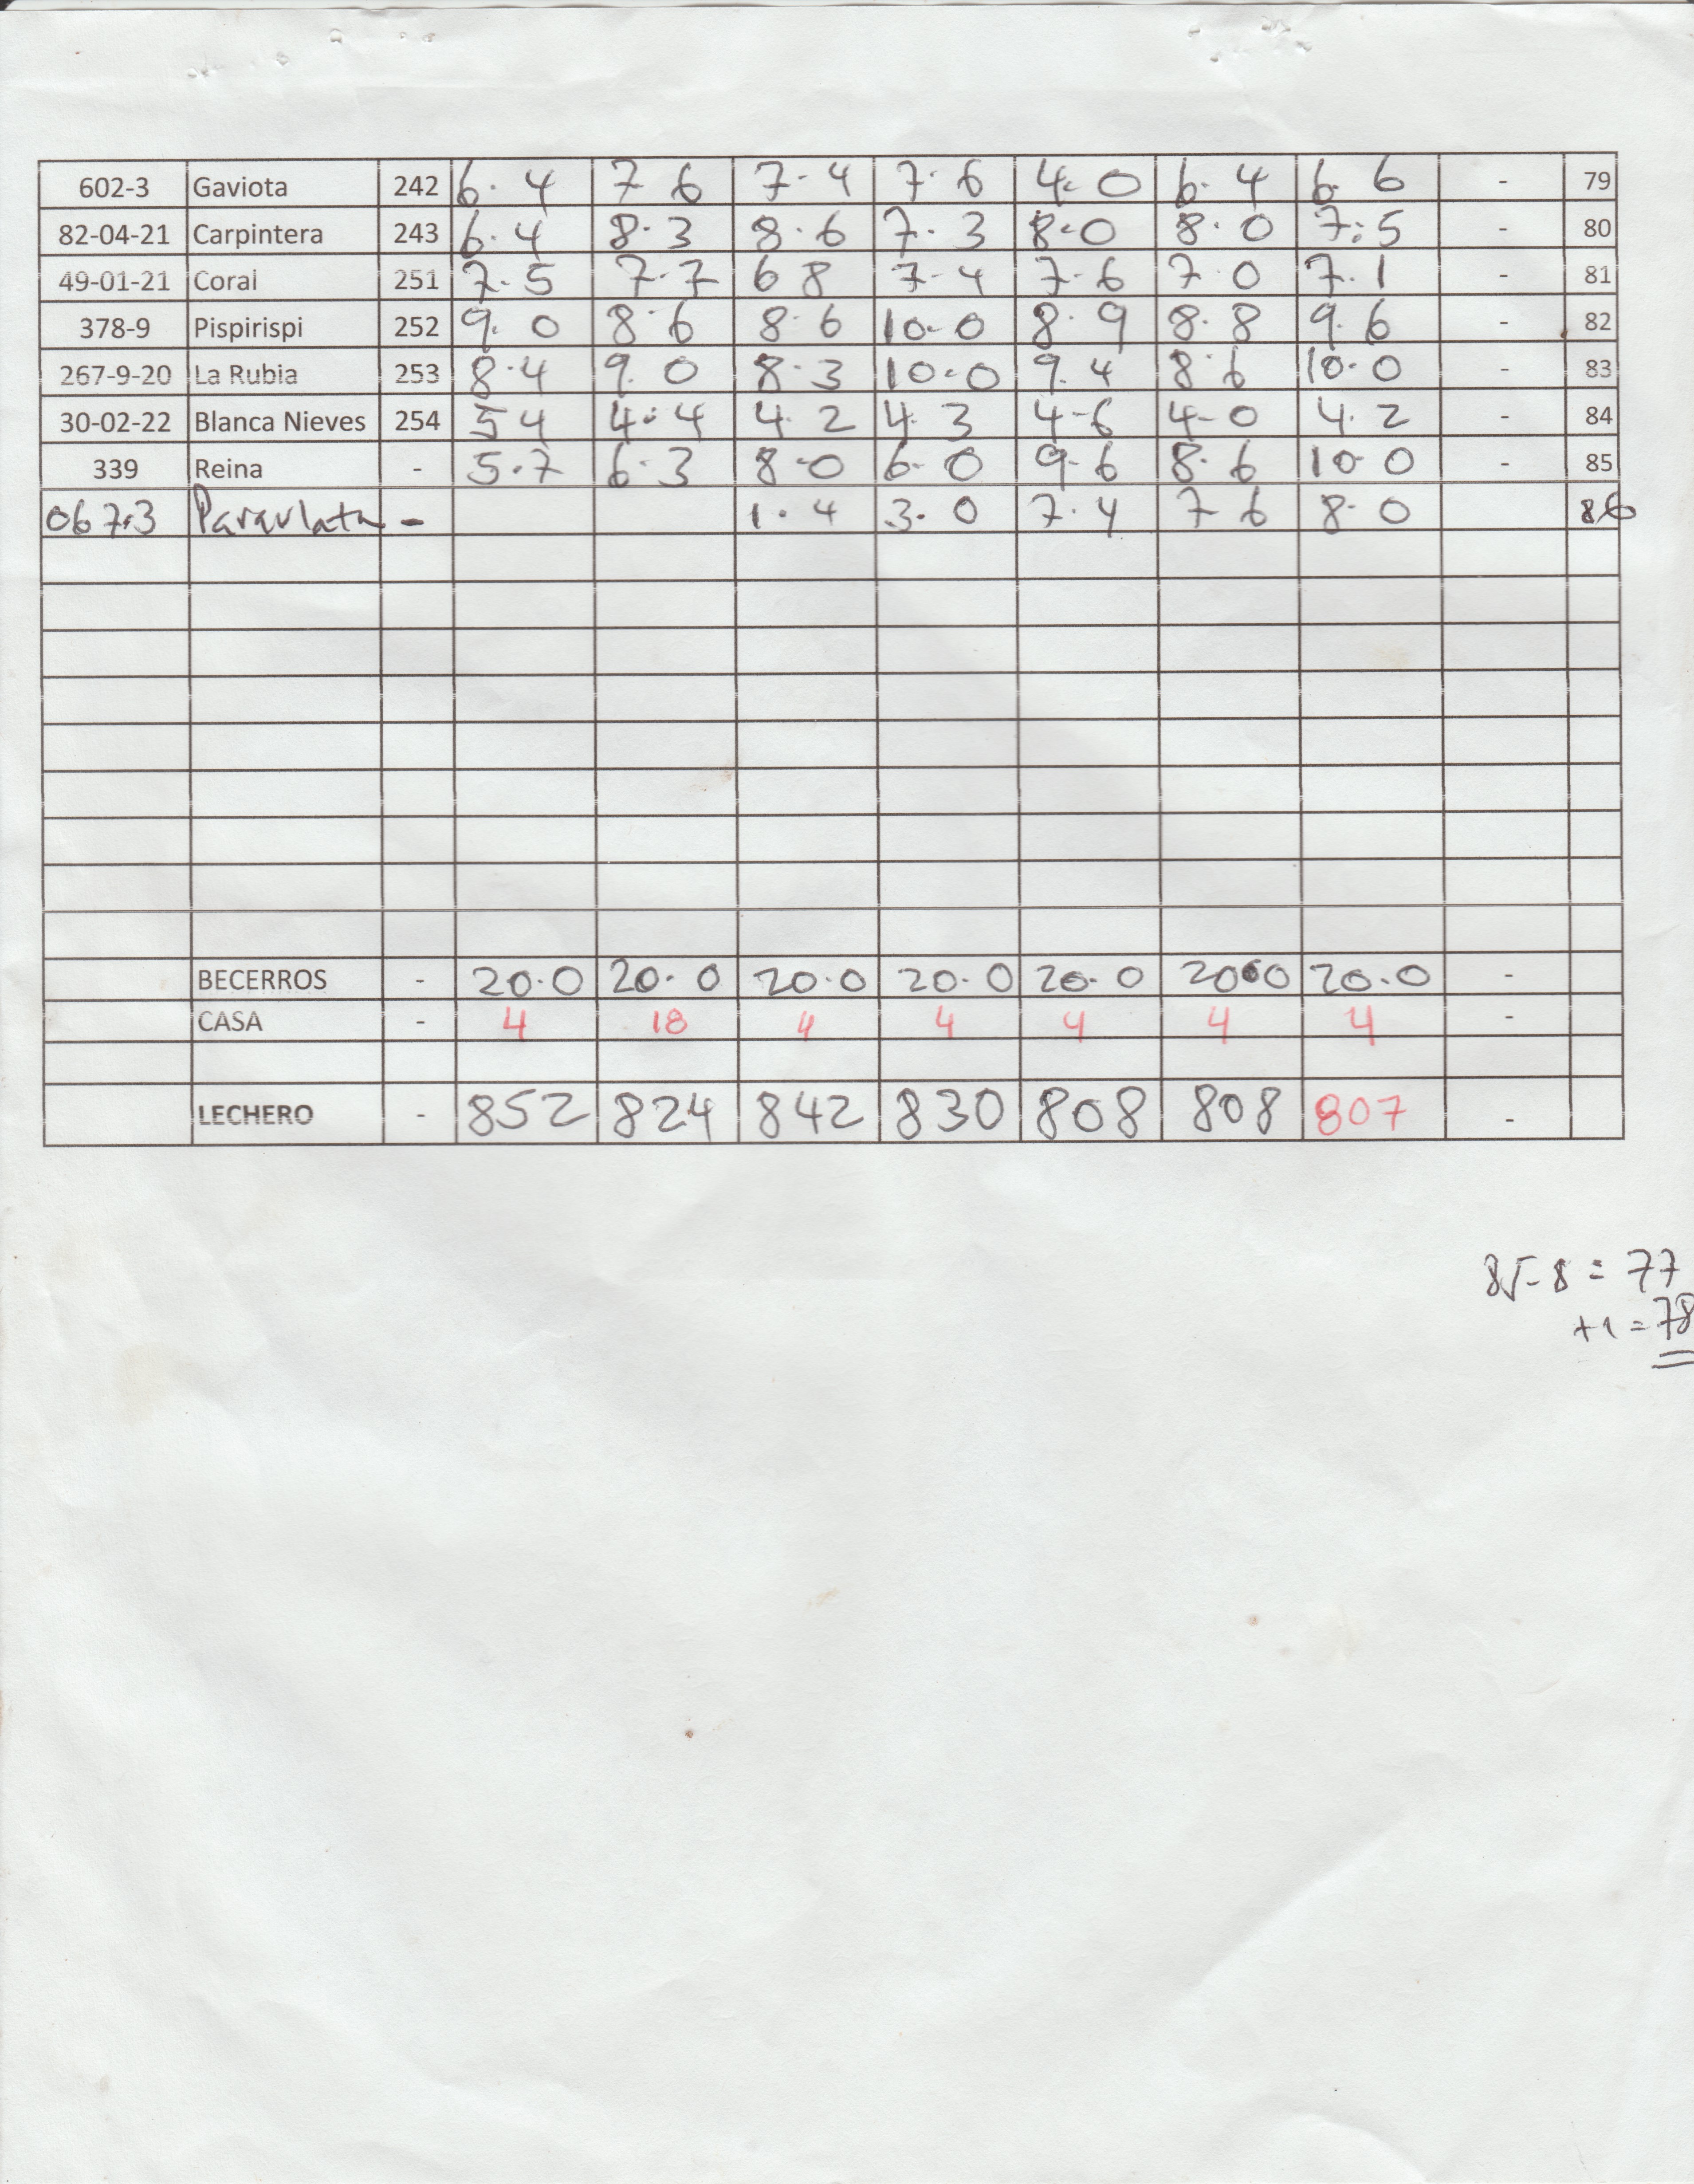 602-3 Gaviota 242 6.4 7 6 7.4 7.6 4.0 6.4 6.6 - 79
82-04-21 Carpintera 243 6.4 8.3 8.6 7.3 8.0 8.0 7.5 - 80
49-01-21 Coral 251 7.5 7.7 6 8 7.4 7.6 7 0 7.1 - 81
378-9 Pispirispi 252 9.0 8.6 8.6 10.0 8.9 8.8 9.6 - 82
267-9-20 La Rubia 253 8.4 9.0 8.3 10.0 9.4 8.6 10.0 - 83
30-02-22 Blanca Nieves 254 5 4 4.4 4.2 4.3 4-6 4-0 4.2 - 84
339 Reina - 5.7 6.3 8.0 6.0 9.6 8.6 10.0 - 85
067.3 Paraulata - 1.4 3.0 7.4 7 6 8.0 86
BECERROS - 20.0 20.0 20.0 20.0 20.0 20.0 20.0 -
CASA - 4 18 4 4 4 4 4 -
LECHERO - 852 824 842 830 808 808 807 -
85-8 = 77
+1 = 78